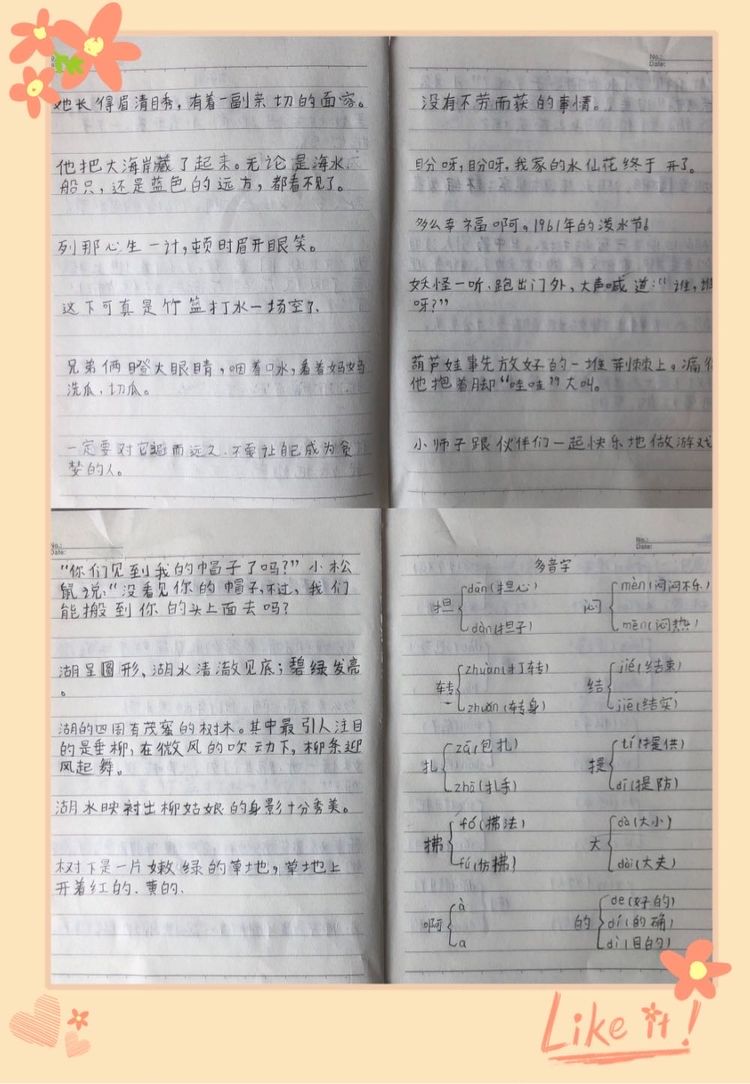 她长得眉清目秀，有着一副亲切的面容。
他把大海岸藏了起来。无论是海水、
船只，还是蓝色的远方，都看不见了。
列那心生一计，顿时眉开眼笑。
这下可真是竹篮打水一场空了.
兄弟俩瞪大眼睛，咽着口水，看着妈妈
洗瓜，切瓜。
一定要对它避而远之.不要让自己成为贪
婪的人。
No.:
Date:
没有不劳而获的事情。
盼呀，盼呀，我家的水仙花终于开了。
多么幸福啊。1961年的泼水节！
妖怪一听，跑出门外、大声喊道："谁，谁
呀？"
葫芦娃事先放好的一堆荆棘上。痛得
他抱着脚"哇哇"大叫。
小师子跟伙伴们一起快乐地做游戏
No.:
Date:
"你们见到我的帽子了吗？"小松
鼠说："没看见你的帽子，不过，我们
能搬到你的头上面去吗？
湖呈圆形、湖水清澈见底；碧绿发亮
。
湖的四周有茂密的树木。其中最引人注目
的是垂柳，在微风的吹动下，柳条迎
风起舞。
湖水映衬出柳姑娘的身影十分秀美。
树下是一片嫩绿的草地，草地上
开着红的.黄的.
No.:
Date:
多音字
担 dān(担心) dàn(担子)
闷 mèn(闷闷不乐) mēn(闷热)
转 zhuàn(打转) zhuǎn(转身)
结 jié(结束) jiē(结实)
扎 zā(包扎) zhā(扎手)
提 tí(提供) dī(提防)
拂 fó(拂法) fú(仿拂)
大 dà(大小) dài(大夫)
啊 à a
的 de(好的) dí(的确) dì(目的)
Like it!